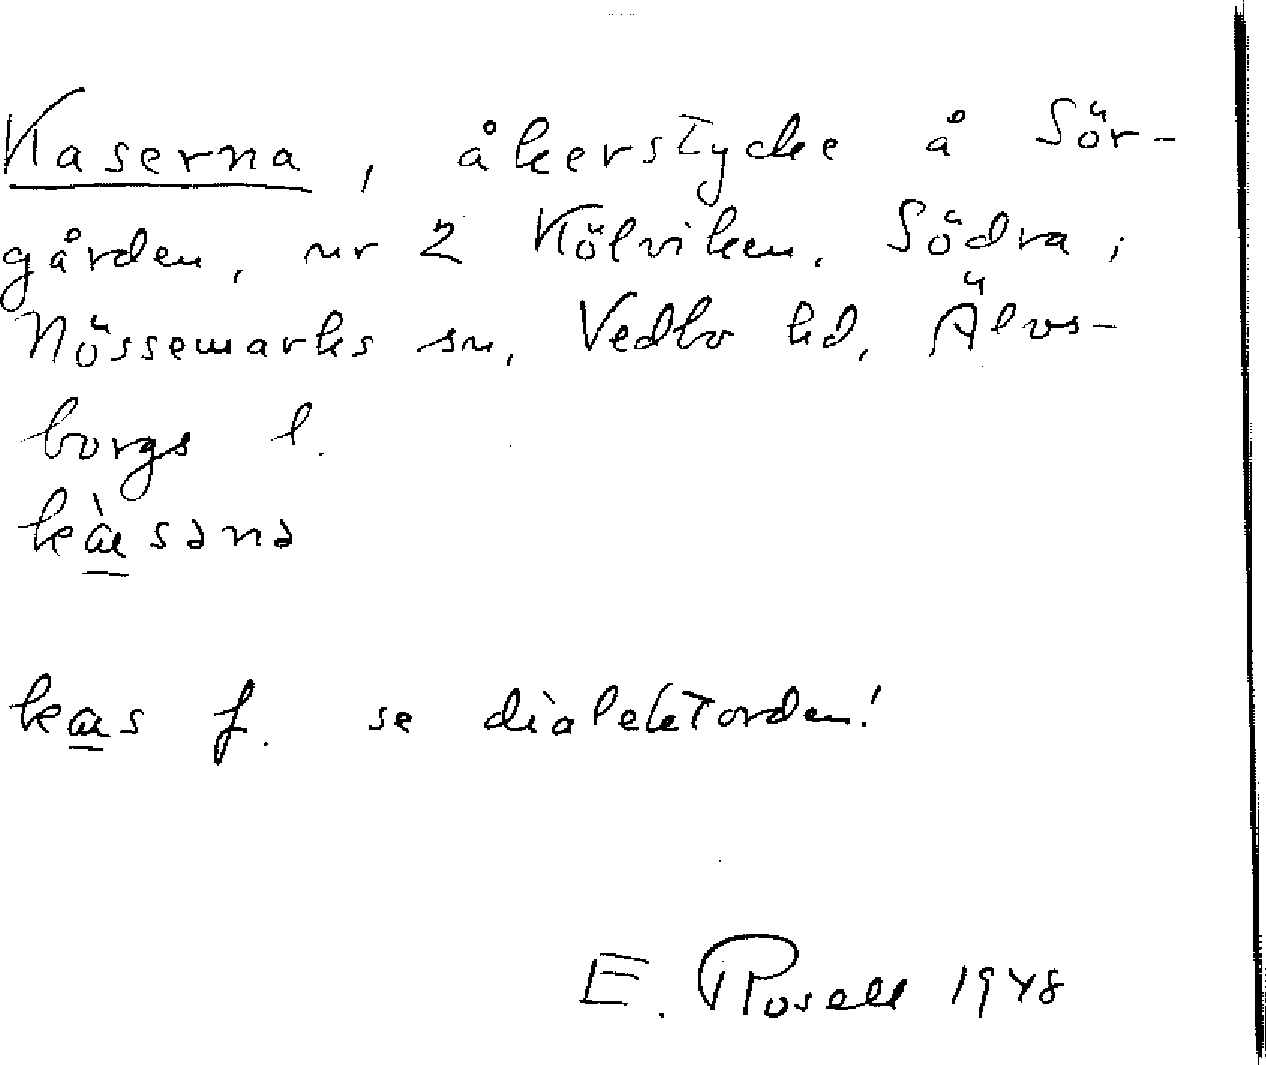 Kaserna, åkerstycke å Sör-
gården, nr 2 Kölviken, Södra,
Nössemarks sn, Vedbo hd, Älvs-
borgs l.
kàsənə
kas f. se dialektorden!
E. Rosell 1948